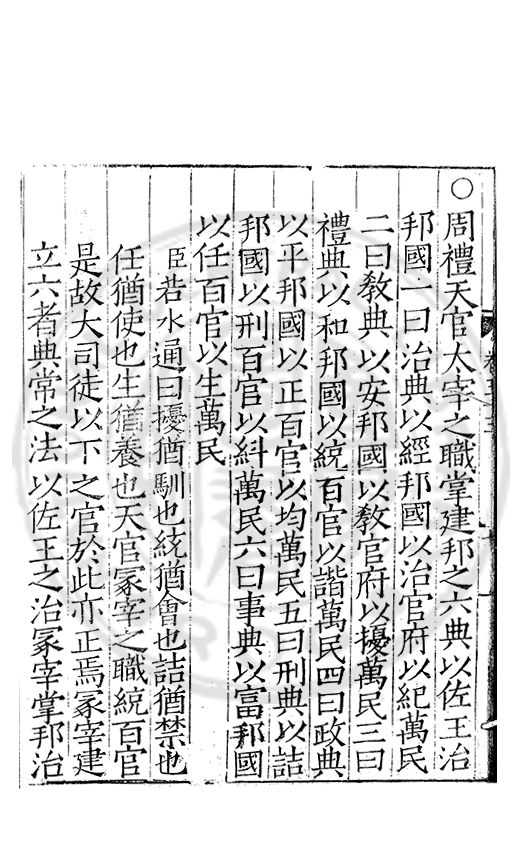 ○周禮天官太宰之職掌建邦之六典以佐王治
邦國一曰治典以經邦國以治官府以紀萬民
二曰教典以安邦國以教官府以擾萬民三曰
禮典以和邦國以統百官以諧萬民四曰政典
以平邦國以正百官以均萬民五曰刑典以詰
邦國以刑百官以糾萬民六曰事典以富邦國
以任百官以生萬民
臣若水通曰擾猶馴也統猶會也詰猶禁也
任猶使也生猶養也天官冢宰之職統百官
是故大司徒以下之官於此亦正焉冢宰建
立六者典常之法以佐王之治冢宰掌邦治